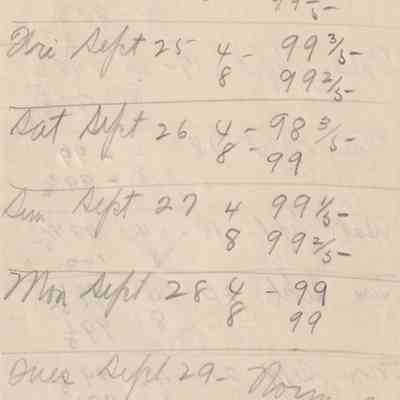 Fri Sept 25 4 - 99 3/5 -
8 99 2/5 -
Sat Sept 26 4 - 98 3/5 -
8 - 99
Sun Sept 27 4 99 1/5 -
8 99 2/5 -
Mon Sept 28 4 - 99
8 99
Tues Sept 29 -